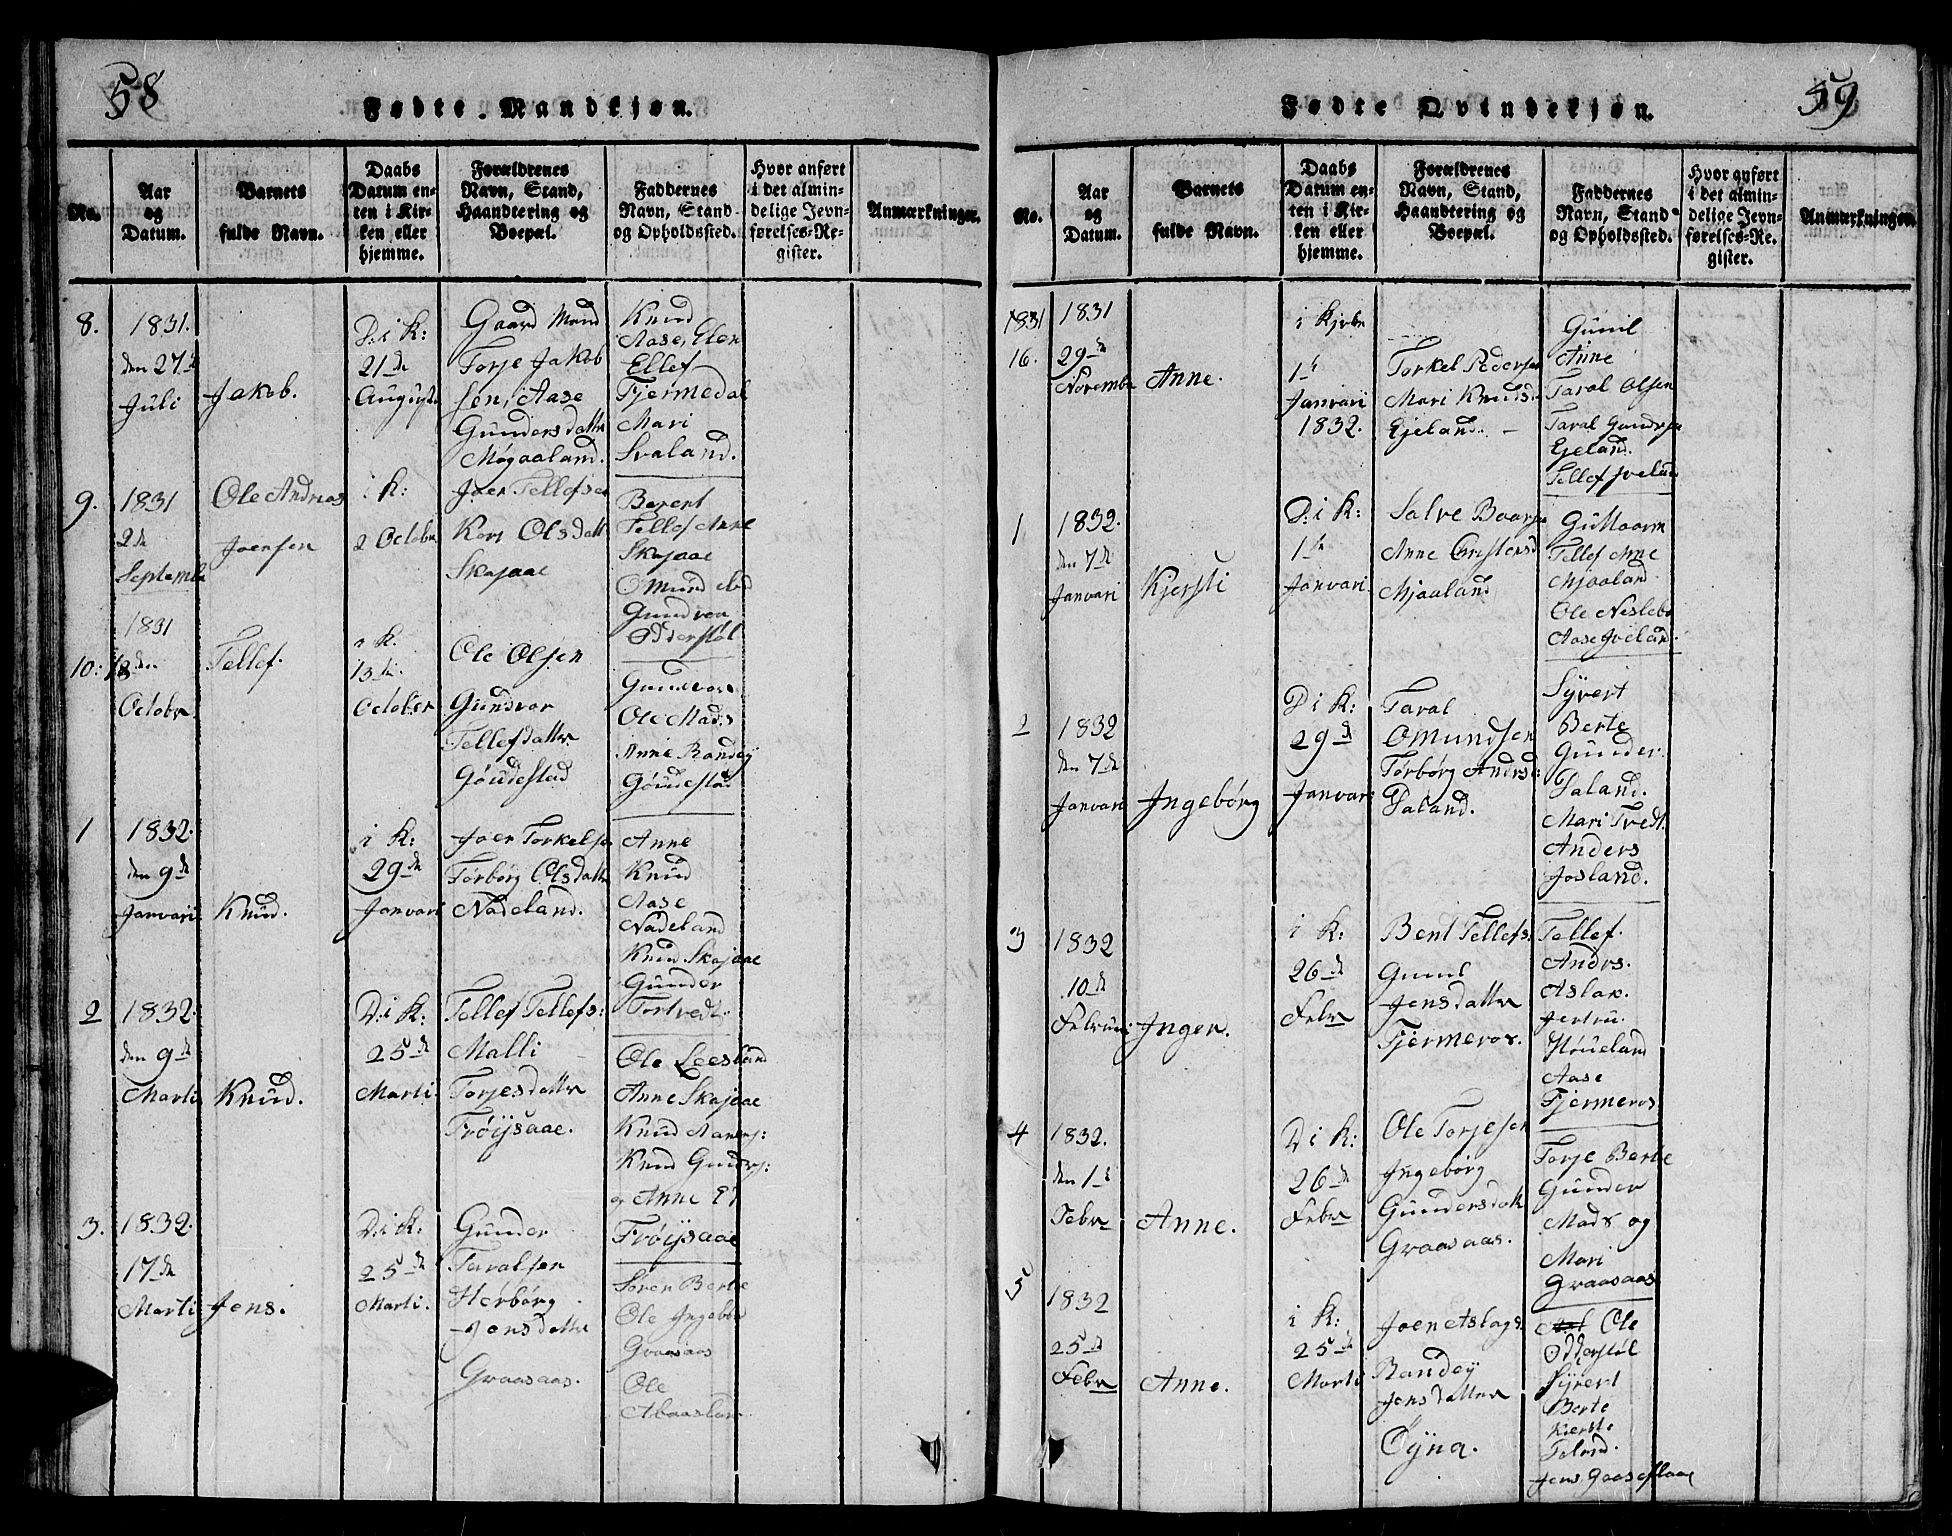 58
Fødte Mandkjøn.
No.
Aar og Datum.
Barnets fulde Navn.
Daabs Datum enten i Kirken eller hjemme.
Forældrenes Navn, Stand, Haandtering og Boepæl.
Faddernes Navn, Stand og Opholdssted.
Hvor anført i det almindelige Jevnførelses-Register.
Anmærkninger.
8.
1831.
den 27de
Juli
Jakob.
D: i K:
21de
August
Gaard Mand
Torje Jakob
sen, Aase
Gundersdatter
Møgaaland.
Knud
Aase, Elen
Ellef
Fjermedal
Mari
Svaland.
9.
1831
2de
September
Ole Andreas
Joensen
i K:
2 October
Joen Tellefsen
Kari Olsdatt
Skajaae
Berent
Tellef Anne
Skajaae
Omund
Gundvor
Odderstøl
10:
1831
18 den
October
Tellef.
i K.
13de
October
Ole Olsen
Gundvor
Tellefsdatter
Goudestad
Gundvor
Ole Mads
Anne Randey
Goudestad
1
1832.
den 9de
Janvari
Knud.
i K:
29de
Janvari
Joen Torkelsen
Torborg Olsdatter
Nadeland.
Anne
Knud
Aase
Nadeland
Knud Skajaae
Gunder
Tortvedt.
2
1832.
den 9de
Marti
Knud.
D: i K:
25de
Marti.
Tellef Tellefs:
Malli
Torjesdatter
Frøysaae.
Ole Leesland
Anne Skajaae
Knud
Knud Gunders:
og Anne
Frøysaae
3.
1832.
17de
Marti
Jens.
D: i K:
25de
Marti.
Gunder
Taralsen
Herborg
Jensdatter
Graasaas.
Søren Berte
Ole Ingebor
Graasaas
Ole
59
Fødte Qvindekjøn.
No.
Aar og Datum.
Barnets fulde Navn.
Daabs Datum enten i Kirken eller hjemme.
Forældrenes Navn, Stand, Haandtering og Boepæl.
Faddernes Navn, Stand og Opholdssted.
Hvor anført i det almindelige Jevnførelses-Re. gister.
Anmærkninger.
1831
16.
1831
29de
November
Anne.
i Kirke
1
Janvari
1832.
Torkel Pedersen
Mari Knudsd
Ejeland.
Gunil
Anne
Taral Olsen
Taral Gundersen
Ejeland.
Tellef Iveland
1
1832.
den 7de
Janvari
Kjersti
D: i K:
1de
Janvari
Salve Baars
Anne Christensd
Mjaaland
Guttorm
Tellef Anne
Mjaaland
Ole Neslebo
Aase Iveland.
2
1832
den 7de
Janvari
Ingeborg
D i K:
29de
Janvar:
Taral
Omundsen
Torborg Andrsd:
Daland.
Syvert
Berte
Gunder
Daland.
Mari Tvedt.
Anders
Josland.
3
1832
10de
Februari
Inger.
i K:
26de
Febr
Bent Tellefs.
Gunil
Jensdatter
Fjermeros.
Tellef.
Andrs.
Aslak.
Jertru.
Høveland
Aase
Fjermeros
4
1832.
den 1
Febr
Anne.
D i K:
26de
Febr
Ole Torjesen
Ingeborg
Gundersdat
Graasaas.
Torje Berte
Gunder
Mads og
Mari
Graasaas
5
1832
25de
Febr
Anne.
i K:
25de
Marti
Joen Aslags.
Randey
Jensdatter
Øyna.
Ole
Odderstøl
Syvert
Berte
Kierste
Jens Gaaseflaae